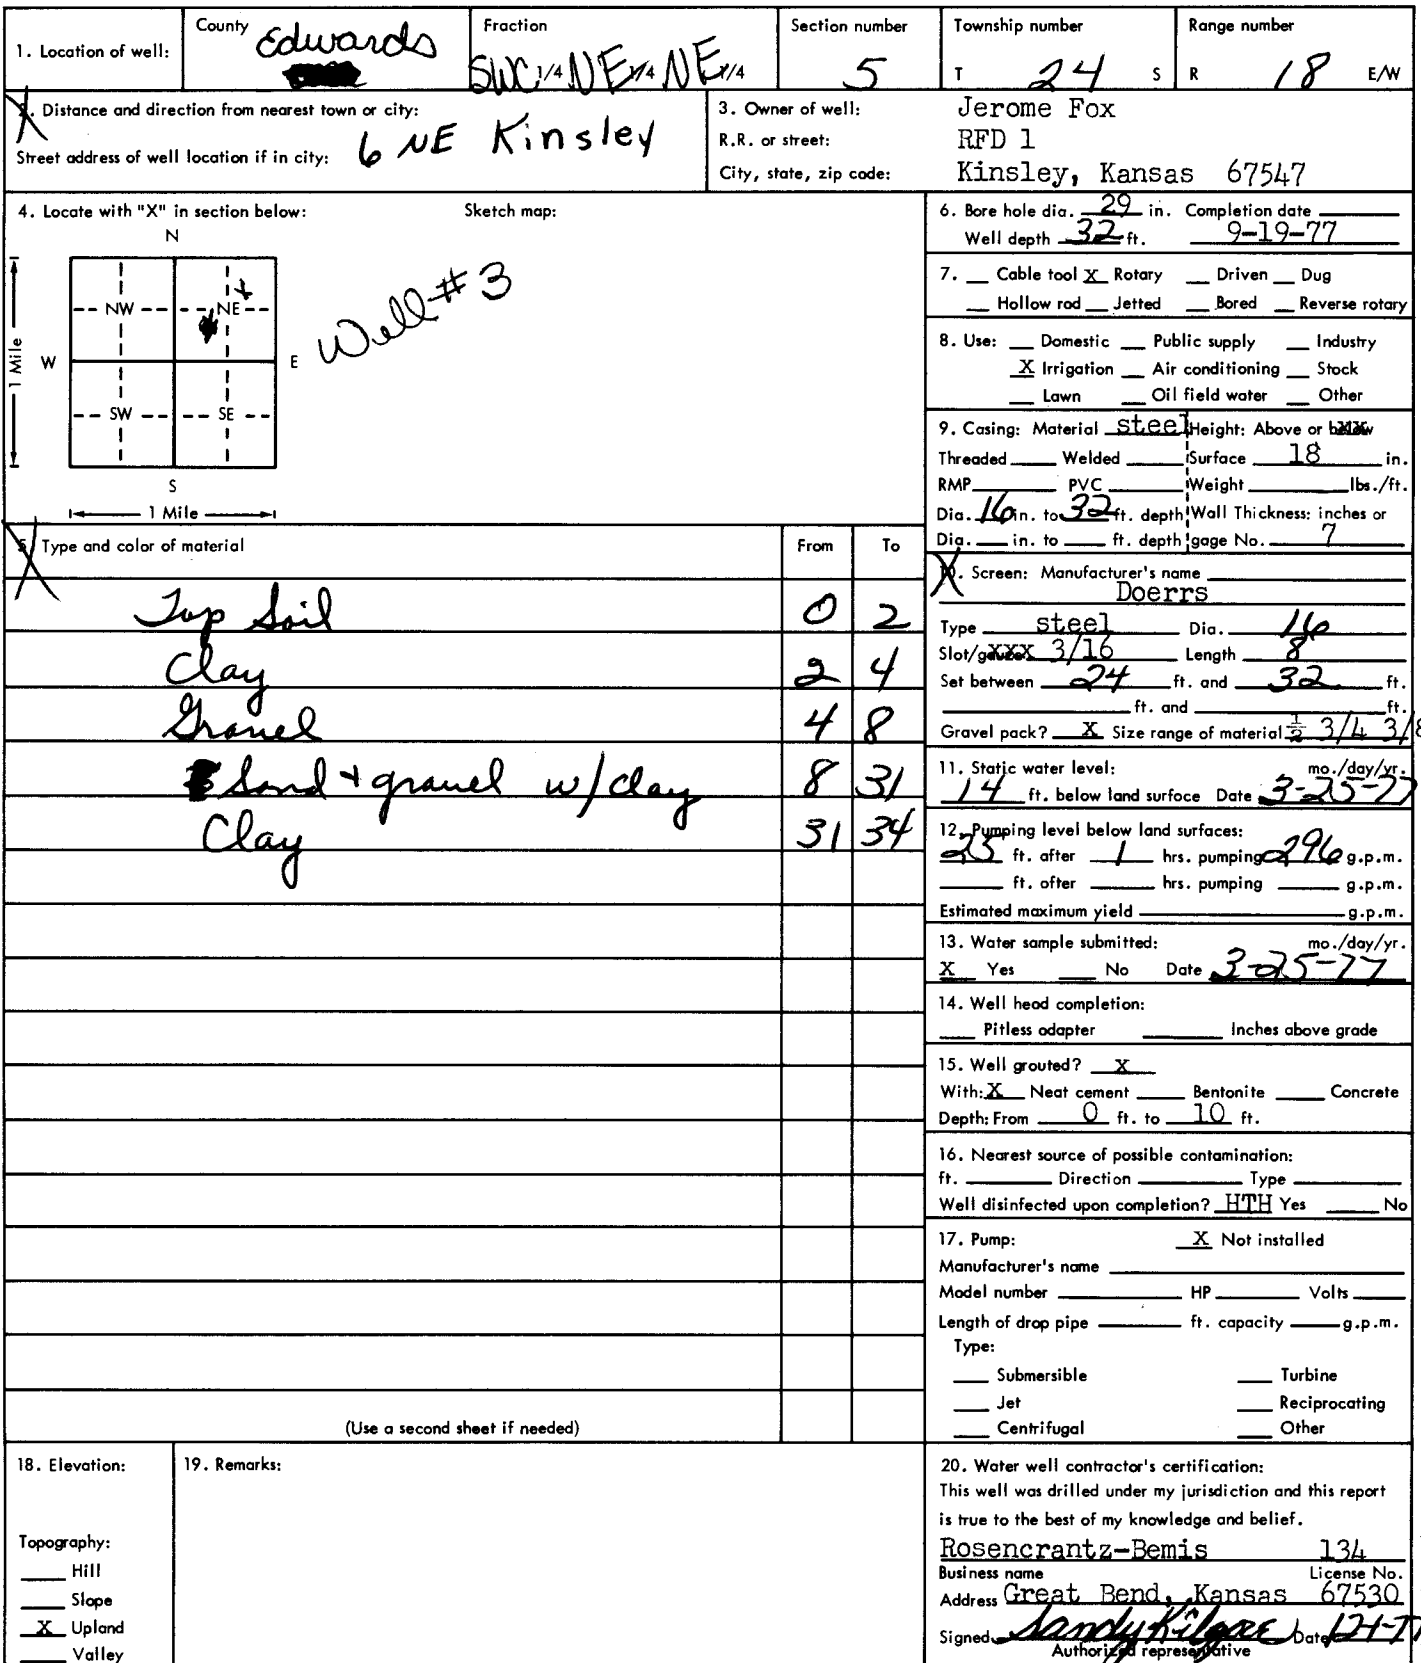 1. Location of well: County Edwards Fraction SWC 1/4 NE 1/4 NE 1/4 Section number 5 Township number T 24 S Range number R 18 E/W
2. Distance and direction from nearest town or city: 6 NE Kinsley
Street address of well location if in city:
3. Owner of well: Jerome Fox
R.R. or street: RFD 1
City, state, zip code: Kinsley, Kansas 67547
4. Locate with "X" in section below: Sketch map:
N
NW NE
W E
SW SE
S
1 Mile
1 Mile
Well #3
5. Type and color of material From To
Top Soil 0 2
Clay 2 4
Gravel 4 8
Sand + gravel w/clay 8 31
Clay 31 34
(Use a second sheet if needed)
6. Bore hole dia. 29 in. Completion date
Well depth 32 ft. 9-19-77
7. Cable tool X Rotary Driven Dug
Hollow rod Jetted Bored Reverse rotary
8. Use: Domestic Public supply Industry
X Irrigation Air conditioning Stock
Lawn Oil field water Other
9. Casing: Material steel Height: Above or below
Threaded Welded Surface 18 in.
RMP PVC Weight lbs./ft.
Dia. 16 in. to 32 ft. depth Wall Thickness: inches or
Dia. in. to ft. depth gage No. 7
10. Screen: Manufacturer's name
Doerrs
Type steel Dia. 16
Slot/gauze XXX 3/16 Length 8
Set between 24 ft. and 32 ft.
ft. and ft.
Gravel pack? X Size range of material 1/2 3/4 3/8
11. Static water level: mo./day/yr.
14 ft. below land surface Date 3-25-77
12. Pumping level below land surfaces:
25 ft. after 1 hrs. pumping 296 g.p.m.
ft. after hrs. pumping g.p.m.
Estimated maximum yield g.p.m.
13. Water sample submitted: mo./day/yr.
X Yes No Date 3-25-77
14. Well head completion:
Pitless adapter Inches above grade
15. Well grouted? X
With: X Neat cement Bentonite Concrete
Depth: From 0 ft. to 10 ft.
16. Nearest source of possible contamination:
ft. Direction Type
Well disinfected upon completion? HTH Yes No
17. Pump: X Not installed
Manufacturer's name
Model number HP Volts
Length of drop pipe ft. capacity g.p.m.
Type:
Submersible Turbine
Jet Reciprocating
Centrifugal Other
18. Elevation:
Topography:
Hill
Slope
X Upland
Valley
19. Remarks:
20. Water well contractor's certification:
This well was drilled under my jurisdiction and this report
is true to the best of my knowledge and belief.
Rosencrantz-Bemis 134
Business name License No.
Address Great Bend, Kansas 67530
Signed Sandy Kilgore Date
Authorized representative